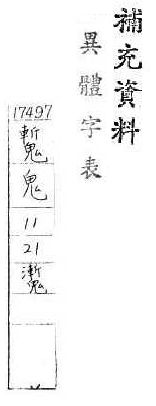 補充資料
異體字表
17497
鬼
11
21
魙